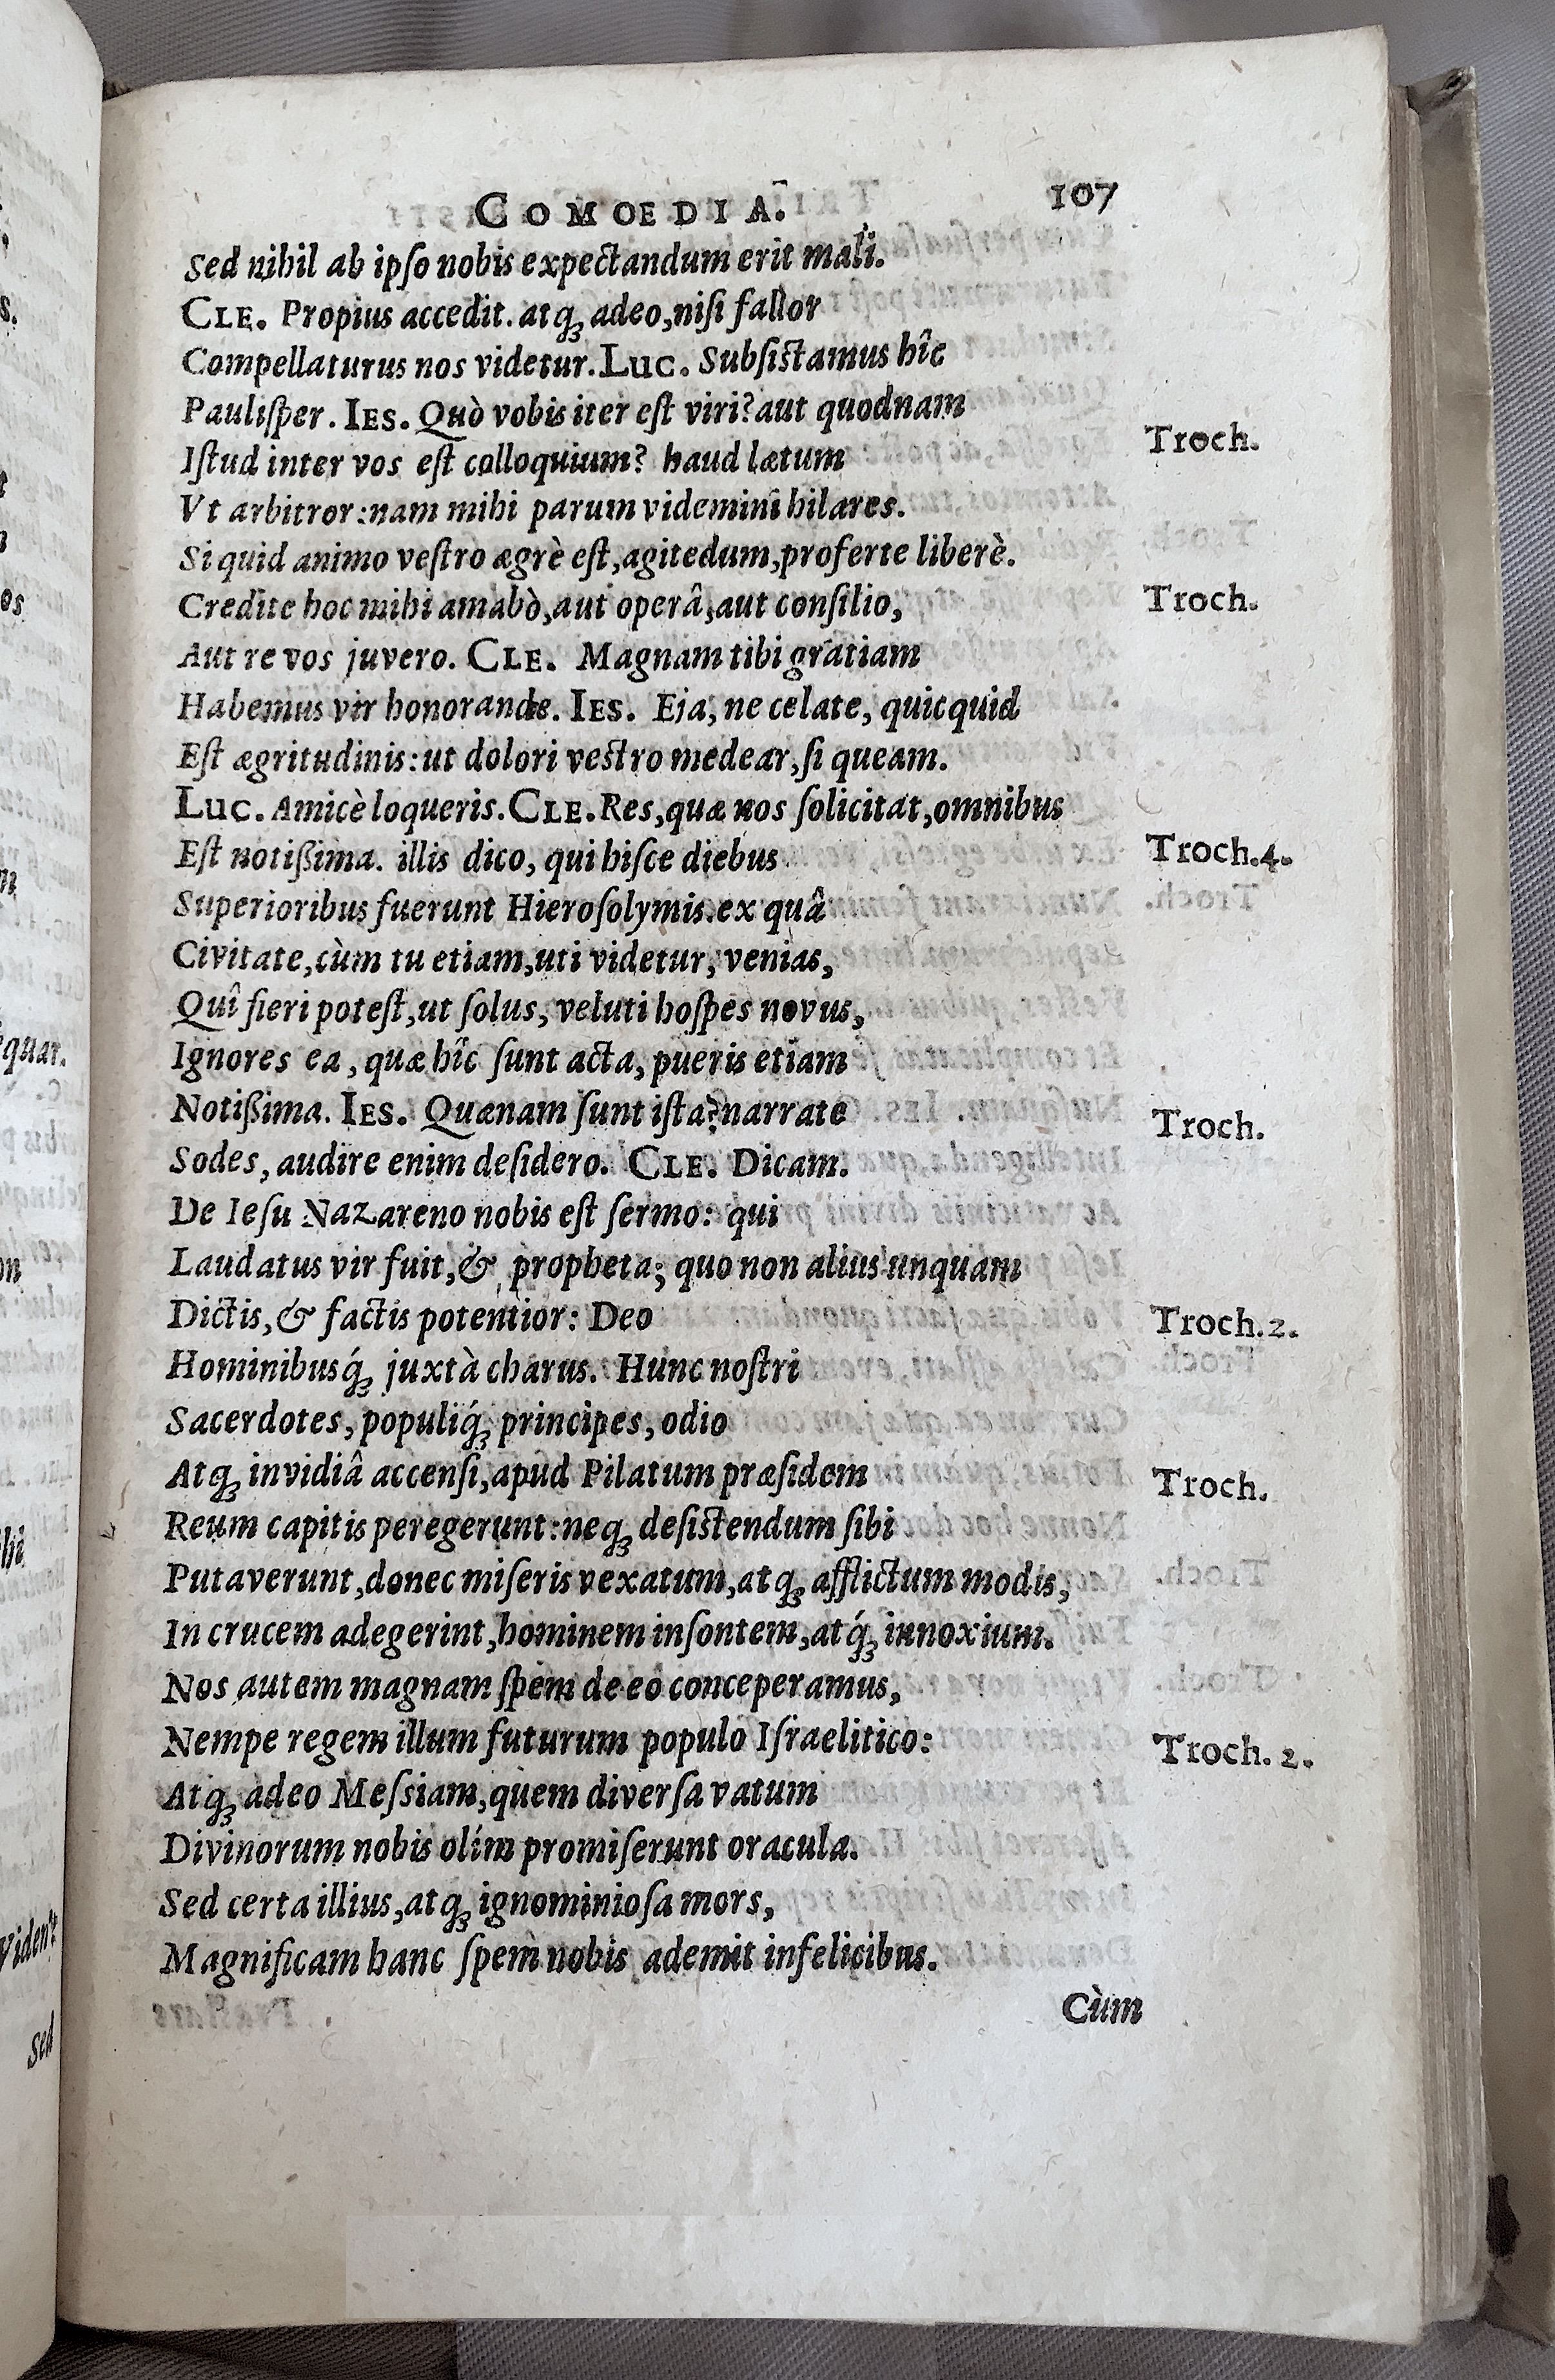 COMOEDIA. 107
Sed nihil ab ipſo nobis expectandum erit mali.
CLE. Propius accedit. atq́ꝫ adeo, niſi fallor
Compellaturus nos videtur. Luc. Subſiſtamus hîc
Pauliſper. IES. Quò vobis iter eſt viri? aut quodnam
Iſtud inter vos eſt colloquium? haud lætum Troch.
Vt arbitror: nam mihi parum videmini hilares.
Si quid animo veſtro ægrè eſt, agitedum, proferte liberè.
Credite hoc mihi amabò, aut operâ, aut conſilio, Troch.
Aut re vos juvero. CLE. Magnam tibi gratiam
Habemus vir honorande. IES. Eja, ne celate, quicquid
Eſt ægritudinis: ut dolori veſtro medear, ſi queam.
Luc. Amicè loqueris. CLE. Res, quæ nos ſolicitat, omnibus
Eſt notißima. illis dico, qui hiſce diebus Troch. 4.
Superioribus fuerunt Hieroſolymis. ex quâ
Civitate, cùm tu etiam, uti videtur, venias,
Quî fieri poteſt, ut ſolus, veluti hoſpes novus,
Ignores ea, quæ hîc ſunt acta, pueris etiam
Notißima. IES. Quænam ſunt iſta? narrate Troch.
Sodes, audire enim deſidero. CLE. Dicam.
De Ieſu Nazareno nobis eſt ſermo: qui
Laudatus vir fuit, & propheta; quo non alius unquam
Dictis, & factis potentior: Deo Troch. 2.
Hominibusq́ꝫ juxtà charus. Hunc noſtri
Sacerdotes, populiq́ꝫ principes, odio
Atqꝫ invidiâ accenſi, apud Pilatum præſidem Troch.
Reum capitis peregerunt: neqꝫ deſiſtendum ſibi
Putaverunt, donec miſeris vexatum, atqꝫ afflictum modis,
In crucem adegerint, hominem inſontem, atq́ꝫ innoxium.
Nos autem magnam ſpem de eo conceperamus,
Nempe regem illum futurum populo Iſraelitico: Troch. 2.
Atqꝫ adeo Meſsiam, quem diverſa vatum
Divinorum nobis olim promiſerunt oracula.
Sed certa illius, atqꝫ ignominioſa mors,
Magnificam hanc ſpem nobis ademit infelicibus.
Cùm